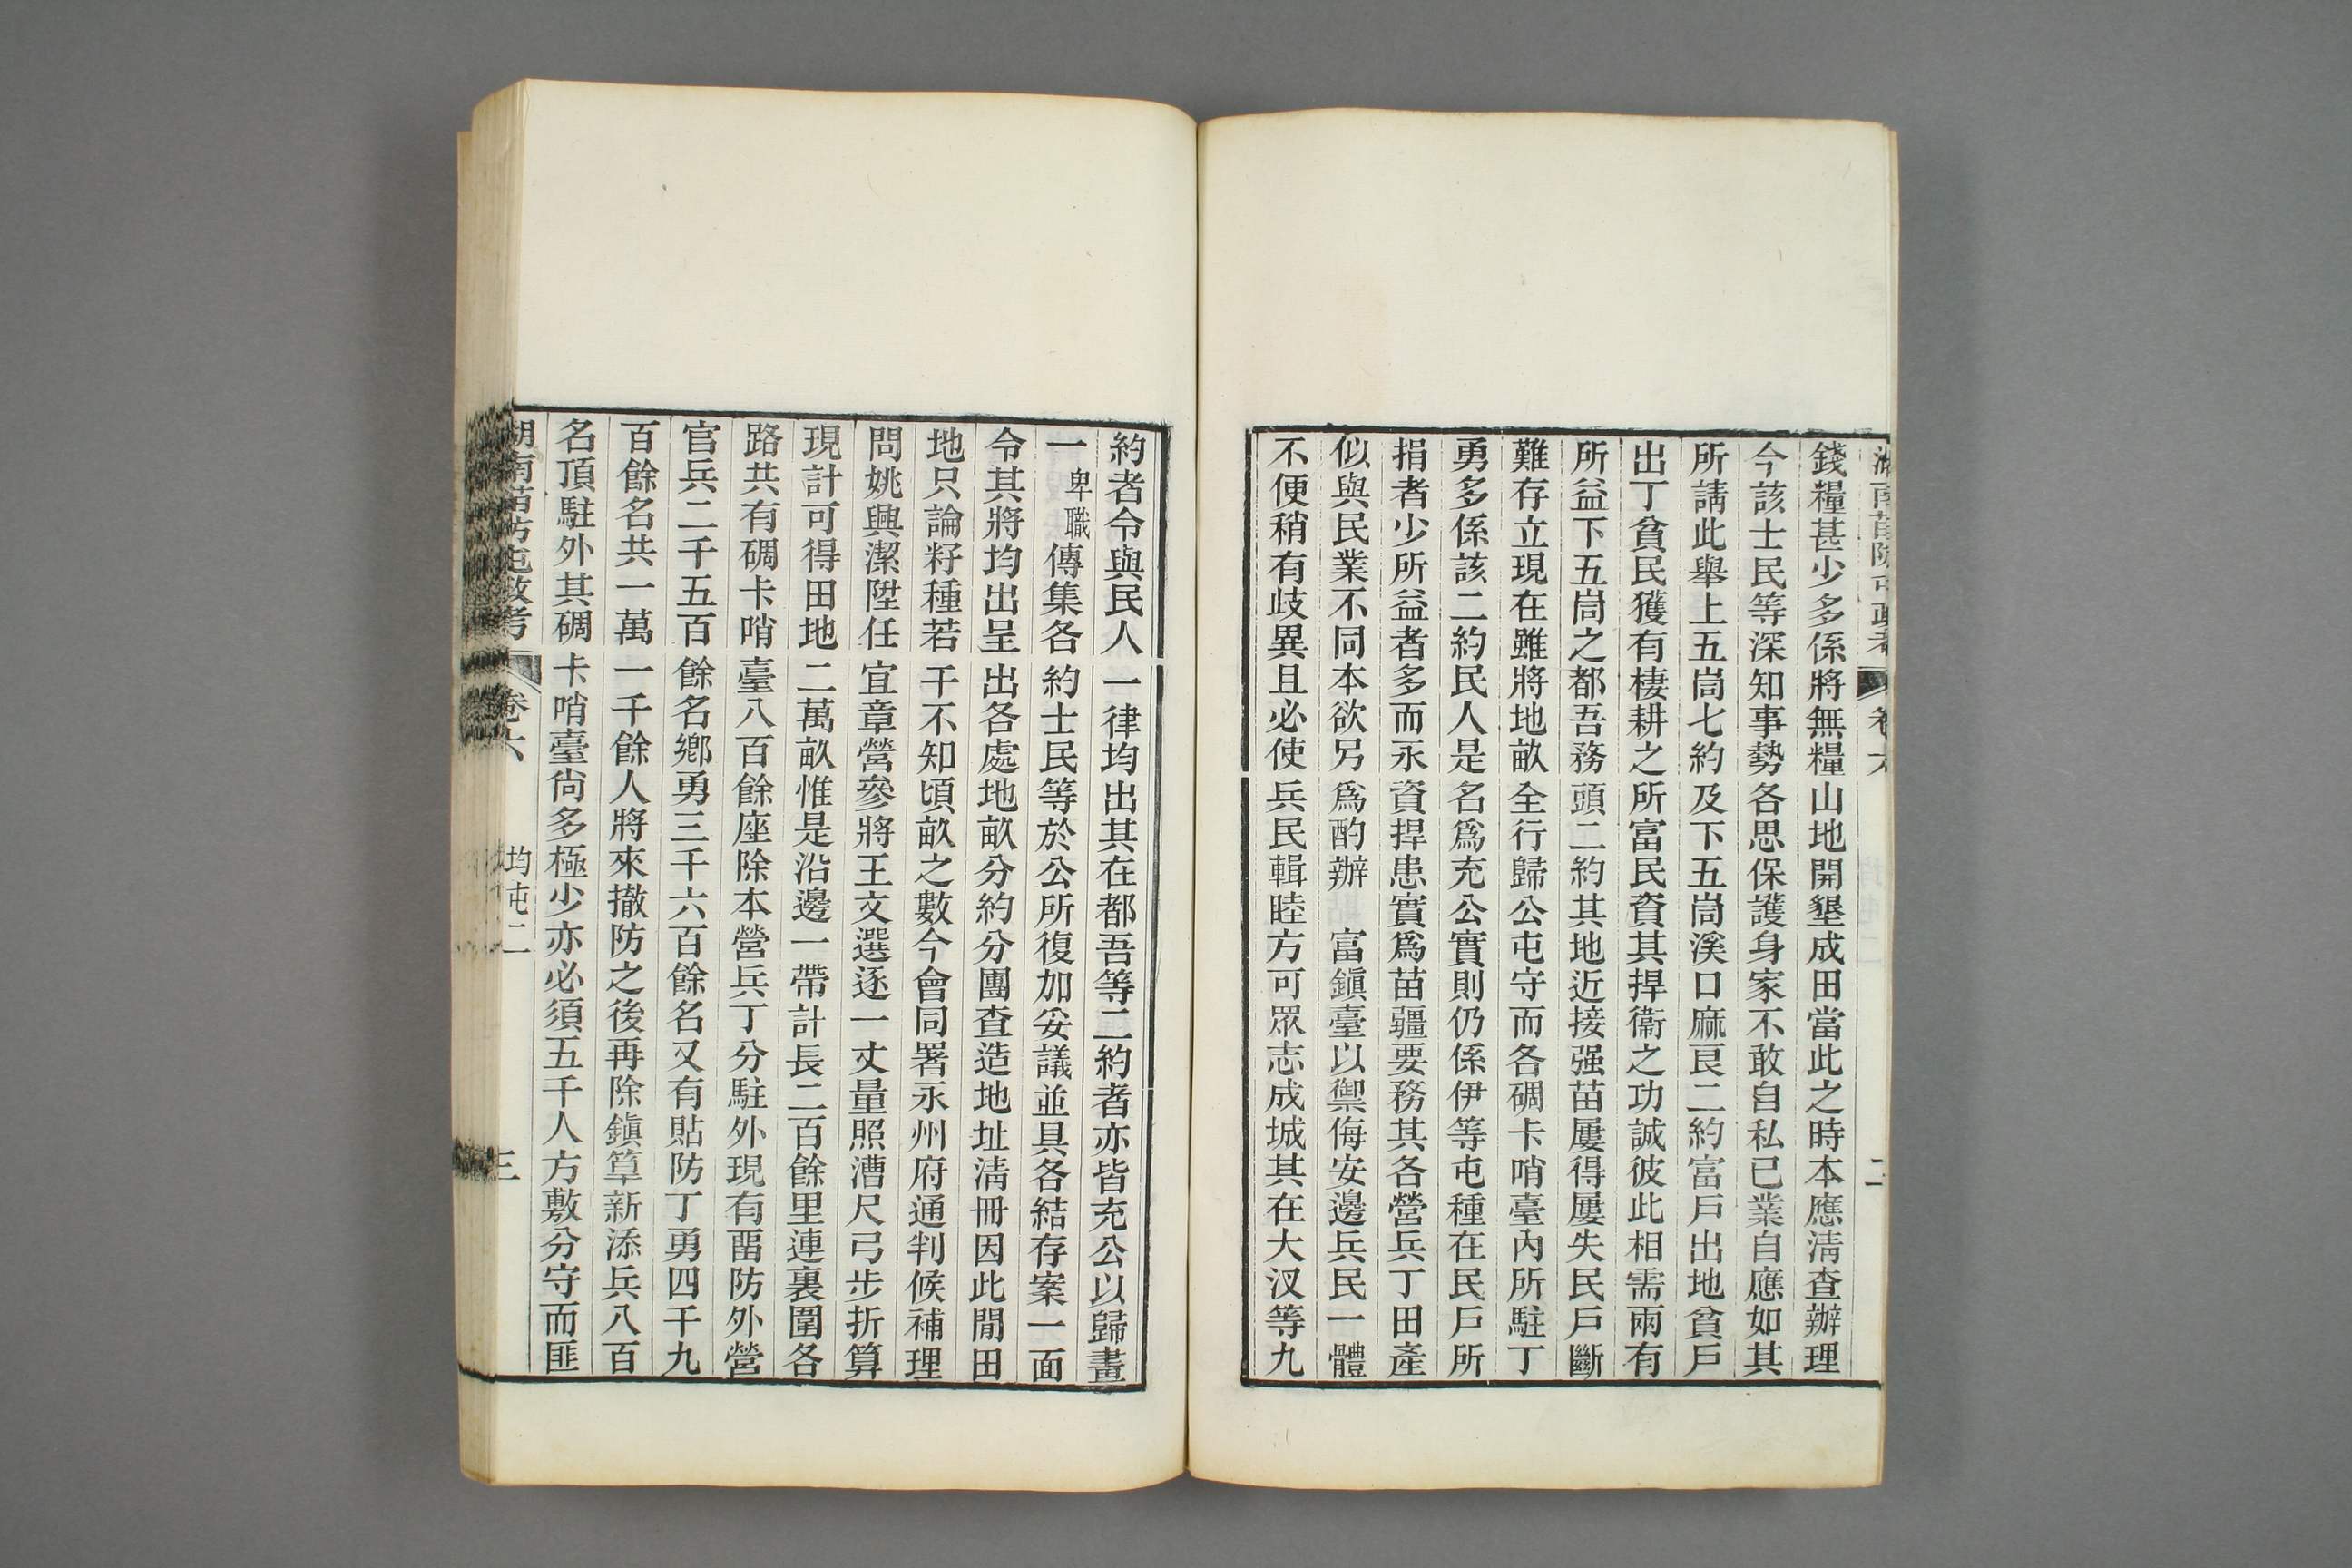 湖南苗防屯政考 卷六 二
錢糧甚少多係將無糧山地開墾成田當此之時本應淸查辦理
今該士民等深知事勢各思保護身家不敢自私已業自應如其
所請此舉上五峝七約及下五峝溪口麻良二約富戶出地貧戶
出丁貧民獲有棲耕之所富民資其捍衞之功誠彼此相需兩有
所益下五峝之都吾務頭二約其地近接强苗屢得屢失民戶斷
難存立現在雖將地畝全行歸公屯守而各碉卡哨臺內所駐丁
勇多係該二約民人是名爲充公實則仍係伊等屯種在民戶所
捐者少所益者多而永資捍患實爲苗疆要務其各營兵丁田產
似與民業不同本欲另爲酌辦 富鎭臺以禦侮安邊兵民一體
不便稍有歧異且必使兵民輯睦方可眾志成城其在大汊等九
約者令與民人一律均出其在都吾等二約者亦皆充公以歸畫
一卑職傳集各約士民等於公所復加妥議並具各結存案一面
令其將均出呈出各處地畝分約分團查造地址淸冊因此閒田
地只論籽種若干不知頃畝之數今會同署永州府通判候補理
問姚興潔陞任宜章營參將王文選逐一丈量照漕尺弓步折算
現計可得田地二萬畝惟是沿邊一帶計長二百餘里連裏圍各
路共有碉卡哨臺八百餘座除本營兵丁分駐外現有畱防外營
官兵二千五百餘名鄉勇三千六百餘名又有貼防丁勇四千九
百餘名共一萬一千餘人將來撤防之後再除鎭筸新添兵八百
名頂駐外其碉卡哨臺尙多極少亦必須五千人方敷分守而匪
湖南苗防屯政考 卷六 均屯二 三